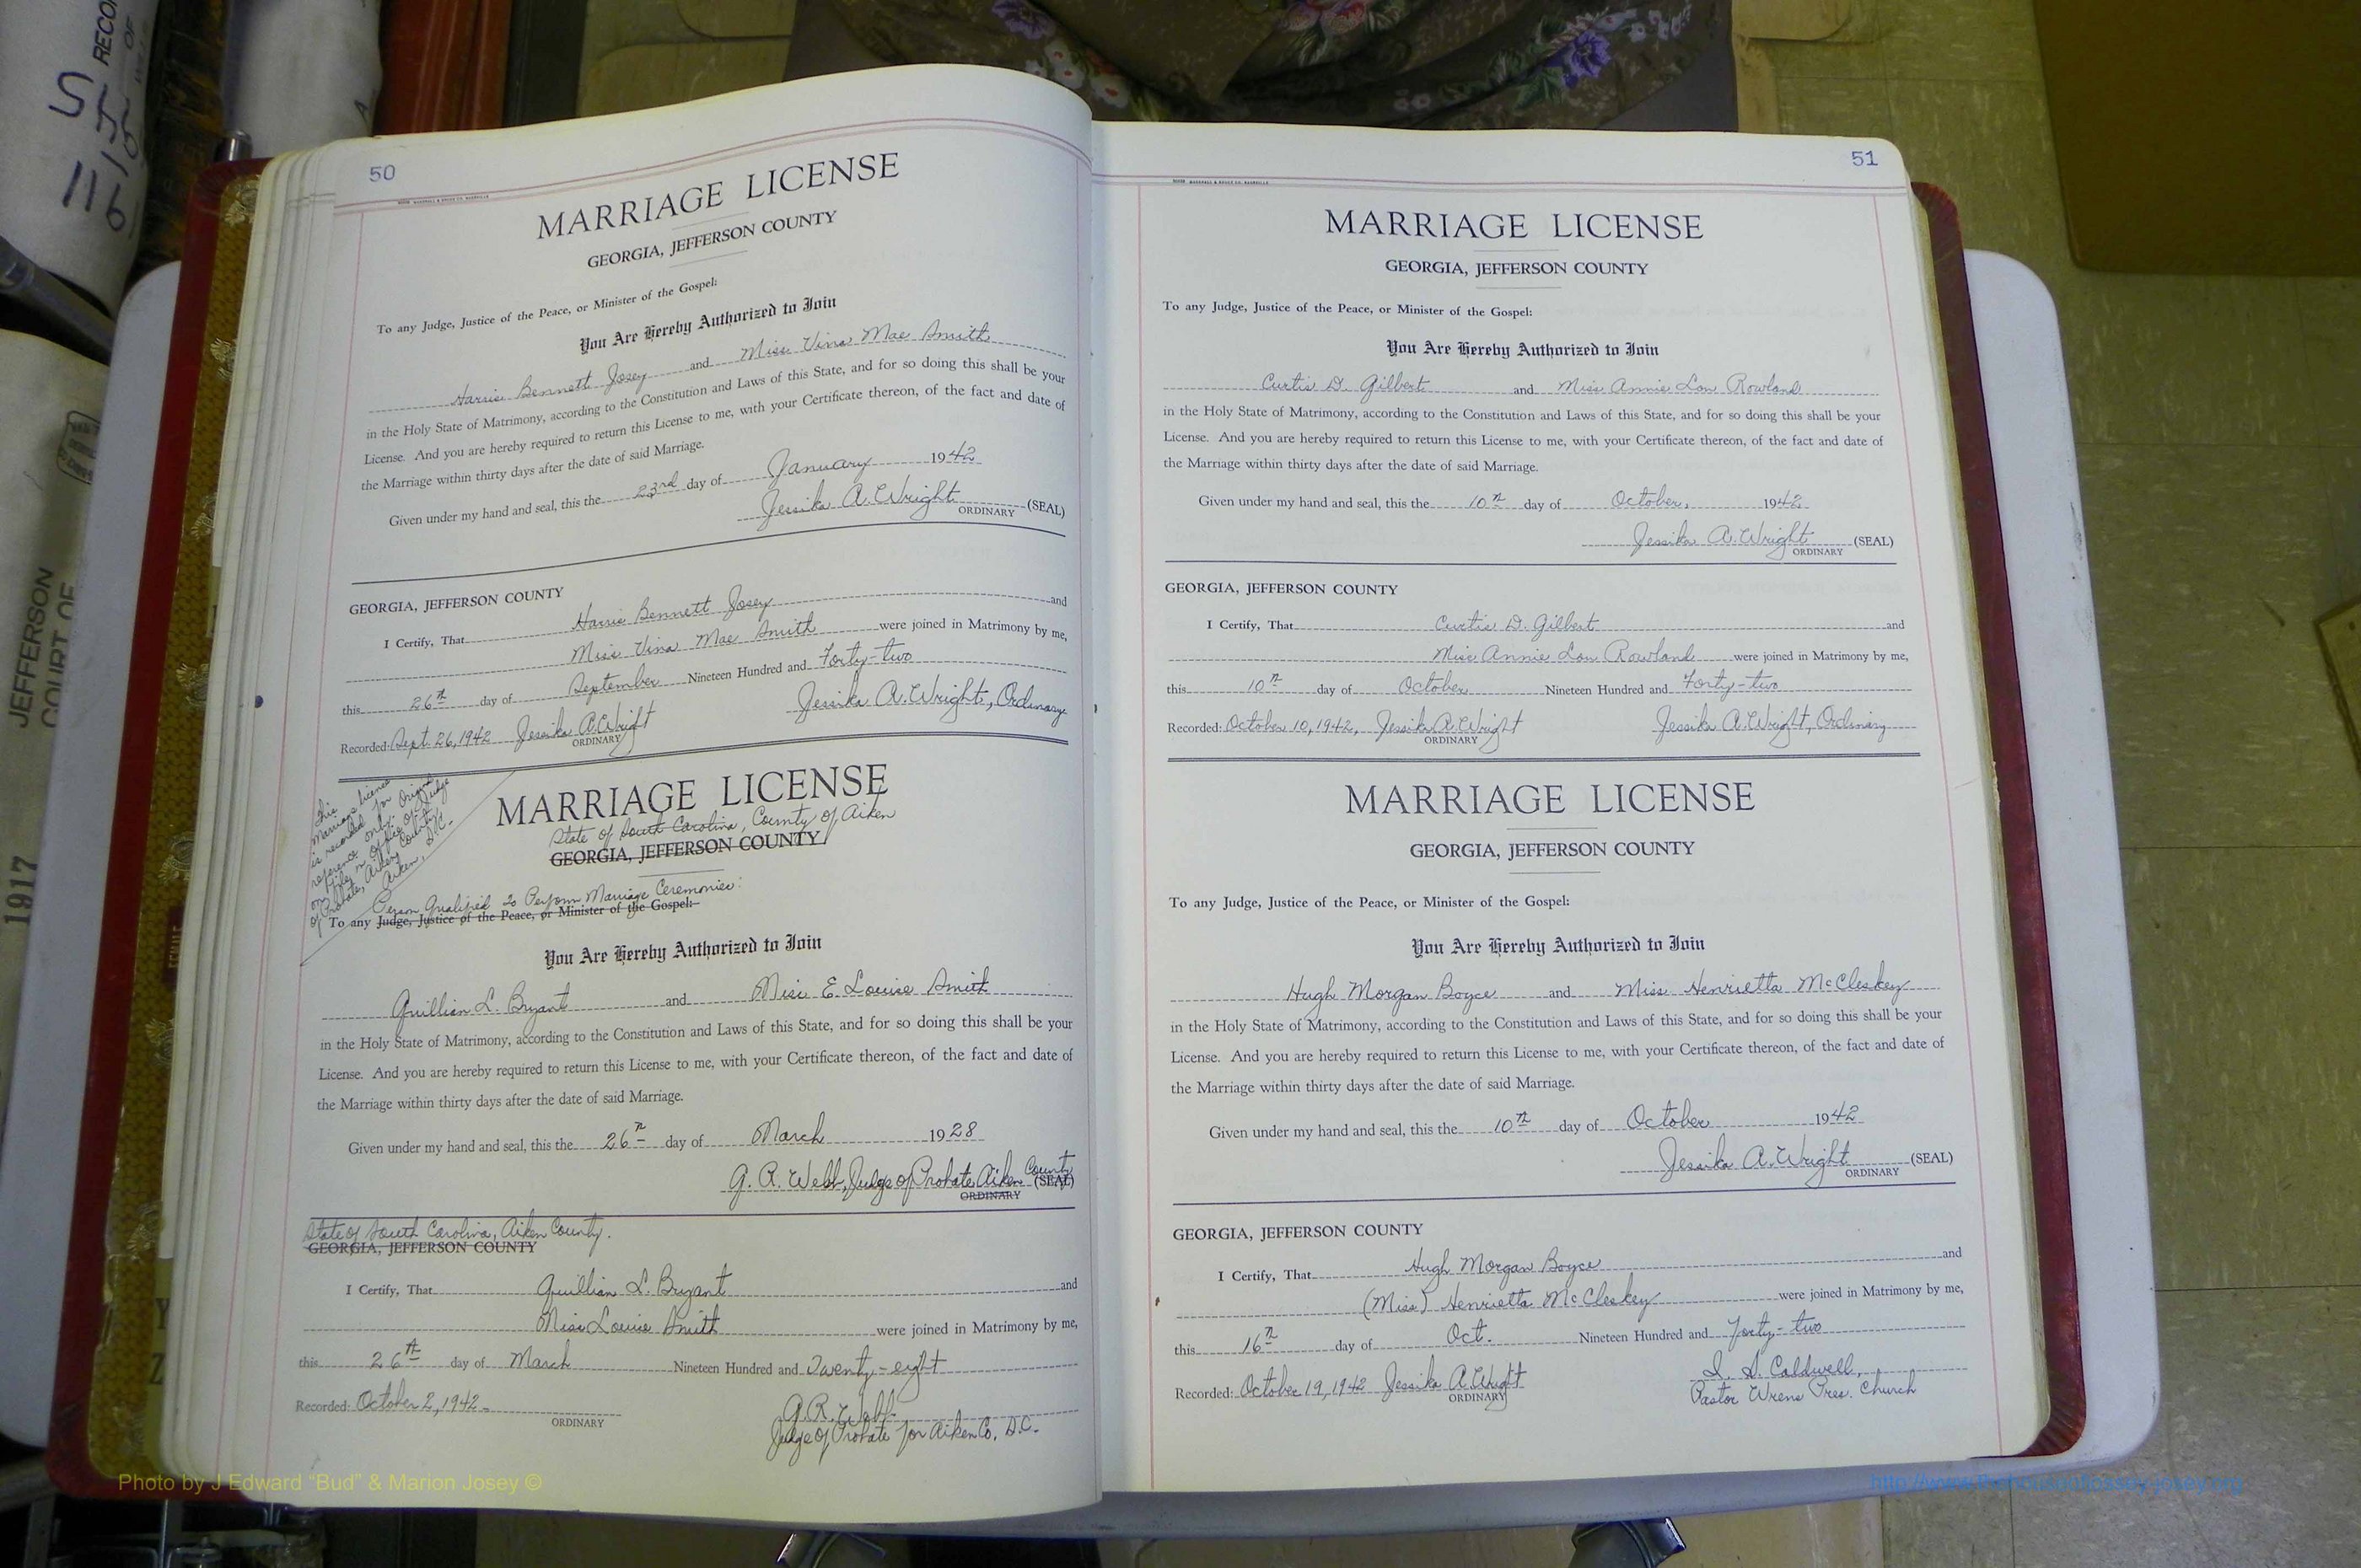 S RECO
5-15 OF
11-6
JEFFERSON
COURT OF
1917
50
MARRIAGE LICENSE
GEORGIA, JEFFERSON COUNTY
To any Judge, Justice of the Peace, or Minister of the Gospel:
You Are Hereby Authorized to Join
Harris Bennett Josey and Miss Vina Mae Smith
in the Holy State of Matrimony, according to the Constitution and Laws of this State, and for so doing this shall be your
License. And you are hereby required to return this License to me, with your Certificate thereon, of the fact and date of
the Marriage within thirty days after the date of said Marriage.
Given under my hand and seal, this the 23rd day of January 1942
Jessika A. Wright (SEAL)
ORDINARY
GEORGIA, JEFFERSON COUNTY
I Certify, That Harris Bennett Josey and
Miss Vina Mae Smith were joined in Matrimony by me,
this 26th day of September Nineteen Hundred and Forty-two
Jessika A. Wright, Ordinary
Recorded: Sept. 26, 1942 Jessika A. Wright
ORDINARY
MARRIAGE LICENSE
This
marriage license
is recorded for
reference only. Original
on file in office of Judge
of Probate, Aiken County,
Aiken, S.C.
State of South Carolina, County of Aiken
GEORGIA, JEFFERSON COUNTY
Person Qualified to Perform Marriage Ceremonies:
To any Judge, Justice of the Peace, or Minister of the Gospel:
You Are Hereby Authorized to Join
Quillian L. Bryant and Miss E. Louise Smith
in the Holy State of Matrimony, according to the Constitution and Laws of this State, and for so doing this shall be your
License. And you are hereby required to return this License to me, with your Certificate thereon, of the fact and date of
the Marriage within thirty days after the date of said Marriage.
Given under my hand and seal, this the 26th day of March 1928
G. R. Webb, Judge of Probate Aiken County (SEAL)
ORDINARY
State of South Carolina, Aiken County.
GEORGIA, JEFFERSON COUNTY
I Certify, That Quillian L. Bryant and
Miss Louise Smith were joined in Matrimony by me,
this 26th day of March Nineteen Hundred and Twenty-eight
Recorded: October 2, 1942 G. R. Webb
ORDINARY
Judge of Probate for Aiken Co. S.C.
51
MARRIAGE LICENSE
GEORGIA, JEFFERSON COUNTY
To any Judge, Justice of the Peace, or Minister of the Gospel:
You Are Hereby Authorized to Join
Curtis D. Gilbert and Miss Annie Lou Rowland
in the Holy State of Matrimony, according to the Constitution and Laws of this State, and for so doing this shall be your
License. And you are hereby required to return this License to me, with your Certificate thereon, of the fact and date of
the Marriage within thirty days after the date of said Marriage.
Given under my hand and seal, this the 10th day of October, 1942
Jessika A. Wright (SEAL)
ORDINARY
GEORGIA, JEFFERSON COUNTY
I Certify, That Curtis D. Gilbert and
Miss Annie Lou Rowland were joined in Matrimony by me,
this 10th day of October Nineteen Hundred and Forty-two
Recorded: October 10, 1942, Jessika A. Wright Jessika A. Wright, Ordinary
ORDINARY
MARRIAGE LICENSE
GEORGIA, JEFFERSON COUNTY
To any Judge, Justice of the Peace, or Minister of the Gospel:
You Are Hereby Authorized to Join
Hugh Morgan Boyce and Miss Henrietta McCleskey
in the Holy State of Matrimony, according to the Constitution and Laws of this State, and for so doing this shall be your
License. And you are hereby required to return this License to me, with your Certificate thereon, of the fact and date of
the Marriage within thirty days after the date of said Marriage.
Given under my hand and seal, this the 10th day of October 1942
Jessika A. Wright (SEAL)
ORDINARY
GEORGIA, JEFFERSON COUNTY
I Certify, That Hugh Morgan Boyce and
(Miss) Henrietta McCleskey were joined in Matrimony by me,
this 16th day of Oct. Nineteen Hundred and Forty-two
I. S. Caldwell,
Recorded: October 19, 1942 Jessika A. Wright Pastor Wrens Pres. Church
ORDINARY
Photo by J Edward "Bud" & Marion Josey ©